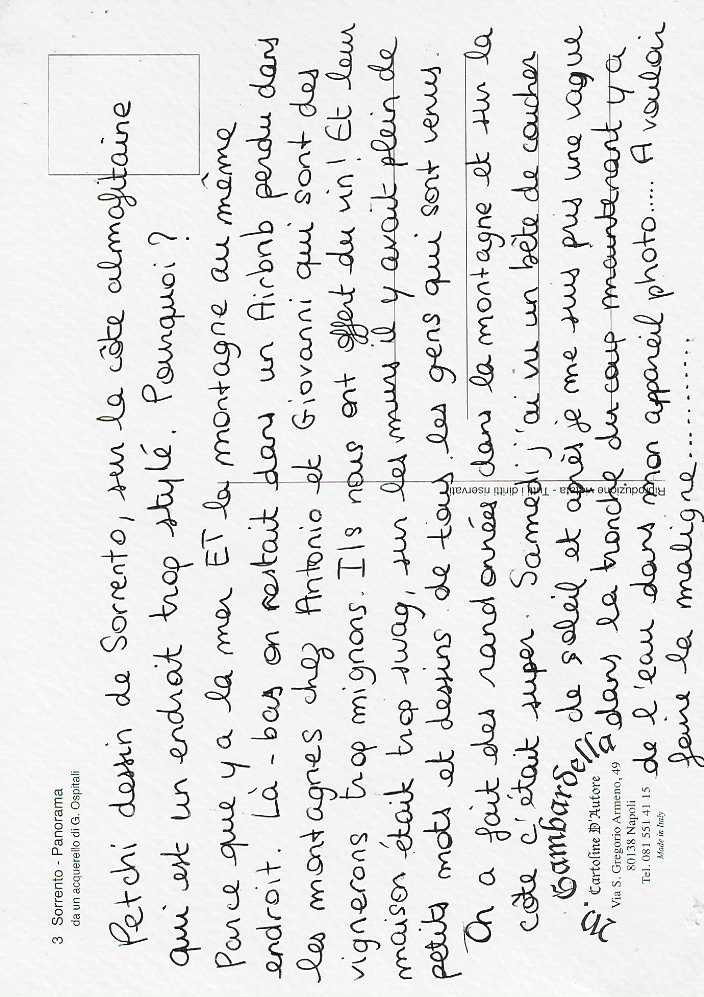 3 Sorrento - Panorama
da un acquerello di G. Ospitali
Petchi dessin de Sorrento, sur la côte almafitaine
qui est un endroit trop stylé. Pourquoi ?
Parce que y a la mer ET la montagne au même
endroit. Là-bas on restait dans un Airbnb perdu dans
les montagnes chez Antonio et Giovanni qui sont des
vignerons trop mignons. Ils nous ont offert du vin ! Et leur
maison était trop swag, sur les murs il y avait plein de
petits mots et dessins de tous les gens qui sont venus.
On a fait des randonnées dans la montagne et sur la
côte c'était super. Samedi j'ai vu un bête de coucher
de soleil et après je me suis pris une vague
dans la tronche du coup maintenant y a
de l'eau dans mon appareil photo..... A vouloir
faire la maligne..........
Riproduzione vietata - Tutti i diritti riservati
Gambardella
Cartoline D'Autore
Via S. Gregorio Armeno, 49
80138 Napoli
Tel. 081 551 41 15
Made in Italy